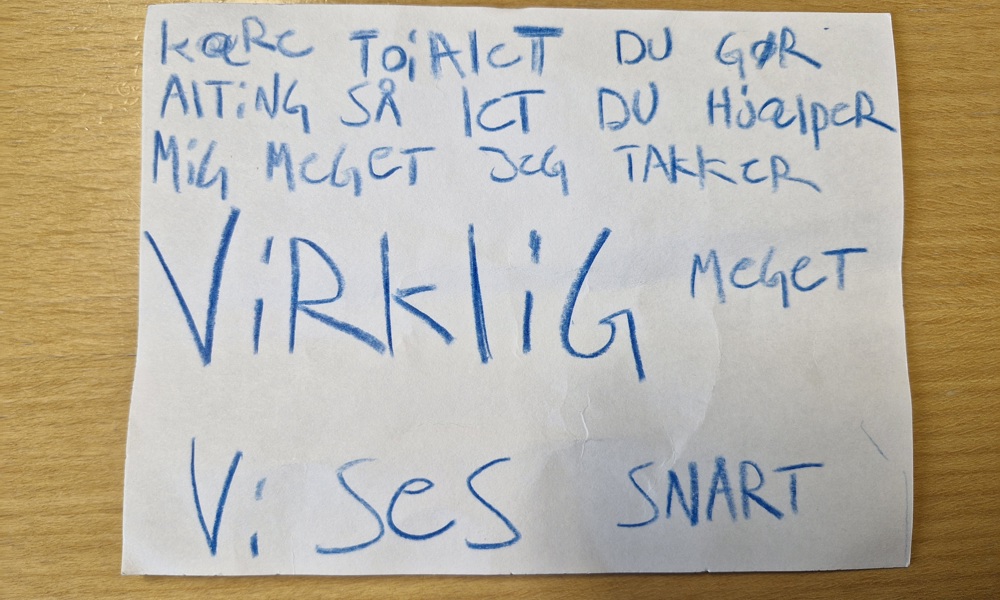 KæRe ToiAleT DU GØR
AlTiNG SÅ leT DU HJælpeR
MiG MeGeT JeG TAKKeR
ViRKliG MeGeT
Vi SeS SNART